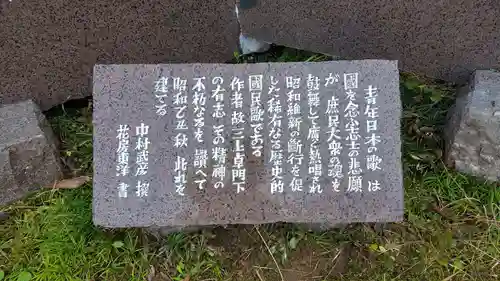 青年日本の歌 は
國を念ふ志士の悲願
が 庶民大衆の魂を
鼓舞して廣く熱唱され
昭和維新の断行を促
した稀有なる歴史的
國民歌である
作者故三上卓門下
の有志 その精神の
不朽なるを 讃へて
昭和乙丑秋 此れを
建てる
中村武彦 撰
花房東洋 書